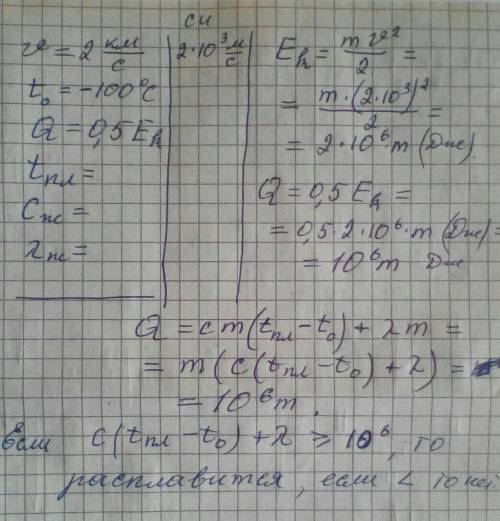 си
v = 2 км/с | 2·10³ м/с
t₀ = -100°C
Q = 0,5 Eₖ
tпл =
cж =
λж =
Eₖ = mv²/2 =
= m·(2·10³)²/2 =
= 2·10⁶·m (Дж).
Q = 0,5 Eₖ =
= 0,5 2·10⁶·m (Дж) =
= 10⁶m Дж
Q = cm(tпл - t₀) + λm =
= m(c(tпл - t₀) + λ) =
= 10⁶m.
Если c(tпл - t₀) + λ ≥ 10⁶, то
расплавится, если < то нет